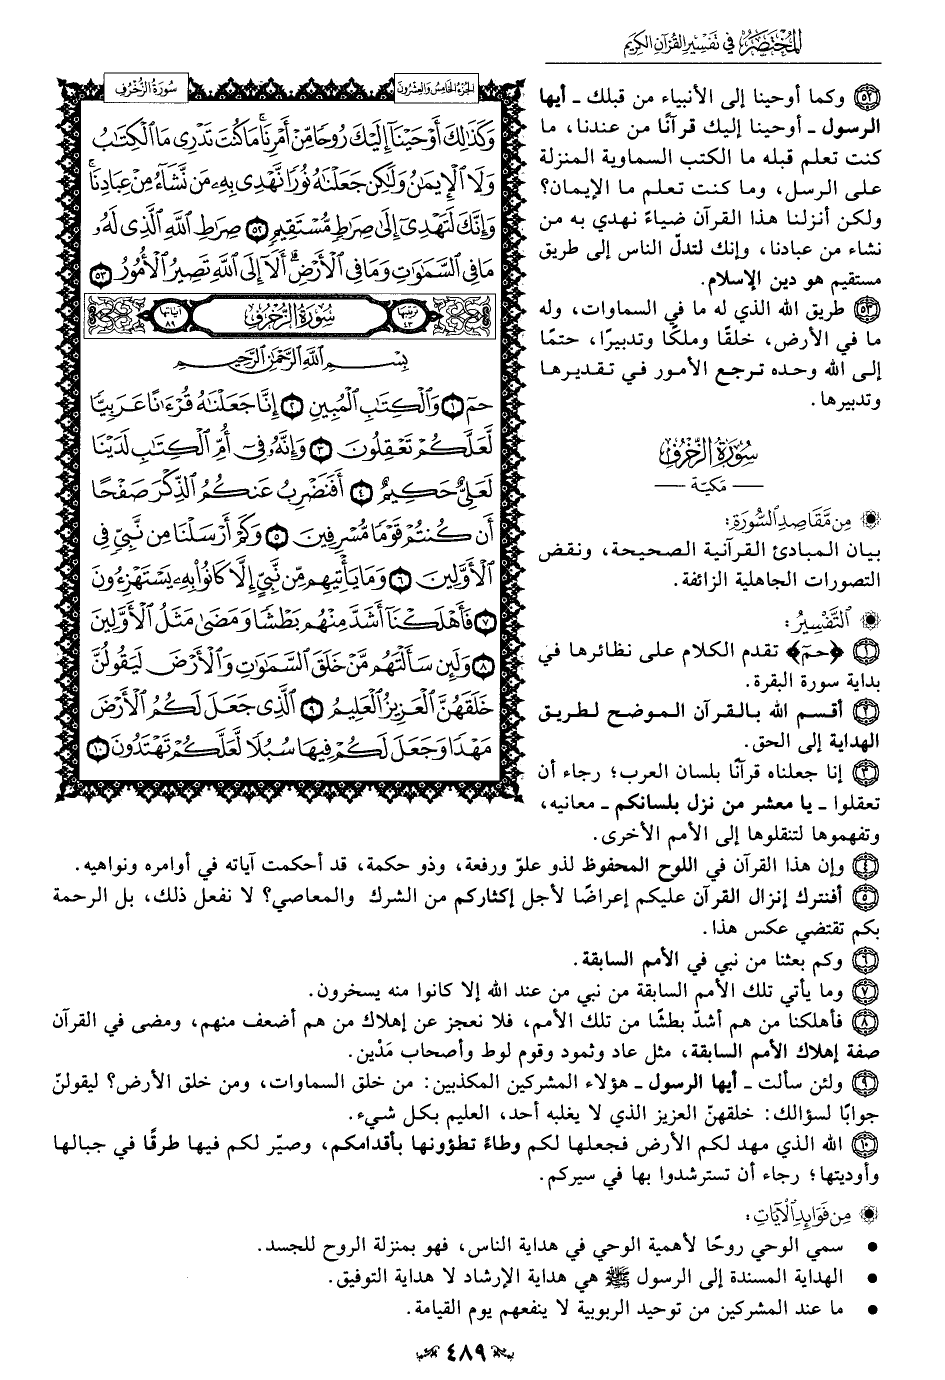 المختصر في تفسير القرآن الكريم
الجزء الخامس والعشرون
سورة الزخرف
وَكَذَٰلِكَ أَوْحَيْنَآ إِلَيْكَ رُوحًا مِّنْ أَمْرِنَا ۚ مَا كُنتَ تَدْرِى مَا ٱلْكِتَٰبُ
وَلَا ٱلْإِيمَٰنُ وَلَٰكِن جَعَلْنَٰهُ نُورًا نَّهْدِى بِهِۦ مَن نَّشَآءُ مِنْ عِبَادِنَا ۚ
وَإِنَّكَ لَتَهْدِىٓ إِلَىٰ صِرَٰطٍ مُّسْتَقِيمٍ ٥٢ صِرَٰطِ ٱللَّهِ ٱلَّذِى لَهُۥ
مَا فِى ٱلسَّمَٰوَٰتِ وَمَا فِى ٱلْأَرْضِ ۗ أَلَآ إِلَى ٱللَّهِ تَصِيرُ ٱلْأُمُورُ ٥٣
ترتيبها ٤٣
سُورَةُ الزُّخْرُفِ
آياتها ٨٩
بِسْمِ ٱللَّهِ ٱلرَّحْمَٰنِ ٱلرَّحِيمِ
حمٓ ١ وَٱلْكِتَٰبِ ٱلْمُبِينِ ٢ إِنَّا جَعَلْنَٰهُ قُرْءَٰنًا عَرَبِيًّا
لَّعَلَّكُمْ تَعْقِلُونَ ٣ وَإِنَّهُۥ فِىٓ أُمِّ ٱلْكِتَٰبِ لَدَيْنَا
لَعَلِىٌّ حَكِيمٌ ٤ أَفَنَضْرِبُ عَنكُمُ ٱلذِّكْرَ صَفْحًا
أَن كُنتُمْ قَوْمًا مُّسْرِفِينَ ٥ وَكَمْ أَرْسَلْنَا مِن نَّبِىٍّ فِى
ٱلْأَوَّلِينَ ٦ وَمَا يَأْتِيهِم مِّن نَّبِىٍّ إِلَّا كَانُوا۟ بِهِۦ يَسْتَهْزِءُونَ
٧ فَأَهْلَكْنَآ أَشَدَّ مِنْهُم بَطْشًا وَمَضَىٰ مَثَلُ ٱلْأَوَّلِينَ
٨ وَلَئِن سَأَلْتَهُم مَّنْ خَلَقَ ٱلسَّمَٰوَٰتِ وَٱلْأَرْضَ لَيَقُولُنَّ
خَلَقَهُنَّ ٱلْعَزِيزُ ٱلْعَلِيمُ ٩ ٱلَّذِى جَعَلَ لَكُمُ ٱلْأَرْضَ
مَهْدًا وَجَعَلَ لَكُمْ فِيهَا سُبُلًا لَّعَلَّكُمْ تَهْتَدُونَ ١٠
٥٢ وكما أوحينا إلى الأنبياء من قبلك ـ أيها
الرسول ـ أوحينا إليك قرآنًا من عندنا، ما
كنت تعلم قبله ما الكتب السماوية المنزلة
على الرسل، وما كنت تعلم ما الإيمان؟
ولكن أنزلنا هذا القرآن ضياءً نهدي به من
نشاء من عبادنا، وإنك لتدلّ الناس إلى طريق
مستقيم هو دين الإسلام.
٥٣ طريق الله الذي له ما في السماوات، وله
ما في الأرض، خلقًا وملكًا وتدبيرًا، حتمًا
إلى الله وحده ترجع الأمور في تقديرها
وتدبيرها.
سُورَةُ الزُّخْرُفِ
ـ مكية ـ
من مقاصد السورة:
بيان المبادئ القرآنية الصحيحة، ونقض
التصورات الجاهلية الزائفة.
التفسير:
١ ﴿حمٓ﴾ تقدم الكلام على نظائرها في
بداية سورة البقرة.
٢ أقسم الله بالقرآن الموضح لطريق
الهداية إلى الحق.
٣ إنا جعلناه قرآنًا بلسان العرب؛ رجاء أن
تعقلوا ـ يا معشر من نزل بلسانكم ـ معانيه،
وتفهموها لتنقلوها إلى الأمم الأخرى.
٤ وإن هذا القرآن في اللوح المحفوظ لذو علوّ ورفعة، وذو حكمة، قد أحكمت آياته في أوامره ونواهيه.
٥ أفنترك إنزال القرآن عليكم إعراضًا لأجل إكثاركم من الشرك والمعاصي؟ لا نفعل ذلك، بل الرحمة
بكم تقتضي عكس هذا.
٦ وكم بعثنا من نبي في الأمم السابقة.
٧ وما يأتي تلك الأمم السابقة من نبي من عند الله إلا كانوا منه يسخرون.
٨ فأهلكنا من هم أشدّ بطشًا من تلك الأمم، فلا نعجز عن إهلاك من هم أضعف منهم، ومضى في القرآن
صفة إهلاك الأمم السابقة، مثل عاد وثمود وقوم لوط وأصحاب مَدْين.
٩ ولئن سألت ـ أيها الرسول ـ هؤلاء المشركين المكذبين: من خلق السماوات، ومن خلق الأرض؟ ليقولنّ
جوابًا لسؤالك: خلقهنّ العزيز الذي لا يغلبه أحد، العليم بكل شيء.
١٠ الله الذي مهد لكم الأرض فجعلها لكم وطاءً تطؤونها بأقدامكم، وصيّر لكم فيها طرقًا في جبالها
وأوديتها؛ رجاء أن تسترشدوا بها في سيركم.
من فوائد الآيات:
• سمي الوحي روحًا لأهمية الوحي في هداية الناس، فهو بمنزلة الروح للجسد.
• الهداية المسندة إلى الرسول ﷺ هي هداية الإرشاد لا هداية التوفيق.
• ما عند المشركين من توحيد الربوبية لا ينفعهم يوم القيامة.
٤٨٩